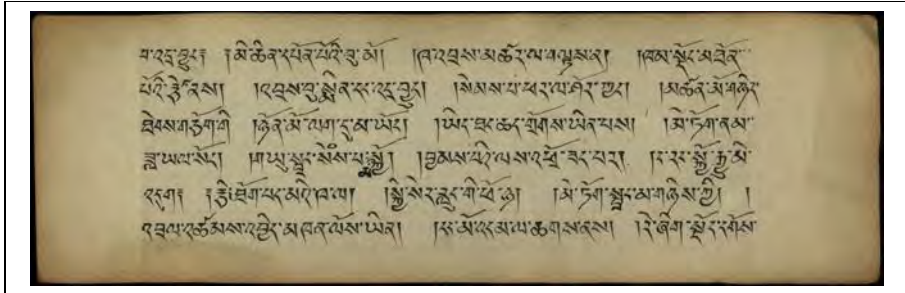 བ་འདྲ་བྱུང༔ ༔མི་ཆེན་དཔོན་པོའི་བུ་མོ། །ཁ་འབྲས་མཚར་ལ་བལྟས་ན། །ཁམ་སྡོང་མཐོན་
པོའི་རྩེ་ནས། །འབྲས་བུ་སྨིན་པ་འདྲ་བྱུང། །སེམས་པ་ཕར་ལ་ཤོར་ཀྱང། །མཚན་མོ་གཉིད་
ཐེབས་གཅོག་གི །ཉིན་མོ་ལག་དུ་མ་ཡོང། །ཡིད་ཐང་ཆད་གྲོགས་ཡིན་པས། །མེ་ཏོག་ནམ་
ཟླ་ཡལ་སོང། །གཡུ་སྦྲང་སེམས་པ་སྐྱོ། །བྱམས་པའི་ལས་འཕྲོ་ཟད་པར། །ང་རང་སྐྱོ་རྒྱུ་མི་
འདུག༔ ༔རྩི་ཐོག་པད་མའི་ཁ་ལ། །སྐྱི་སེར་རླུང་གི་ཕོ་ཉ། །མེ་ཏོག་སྦྲང་མ་གཉིས་ཀྱི། །
འབྲལ་འཚམས་འབྱེད་མཁན་ལོས་ཡིན། །ངང་མོ་འདམ་ལ་ཆགས་ནས། །རེ་ཞིག་སྡོད་དགོས་